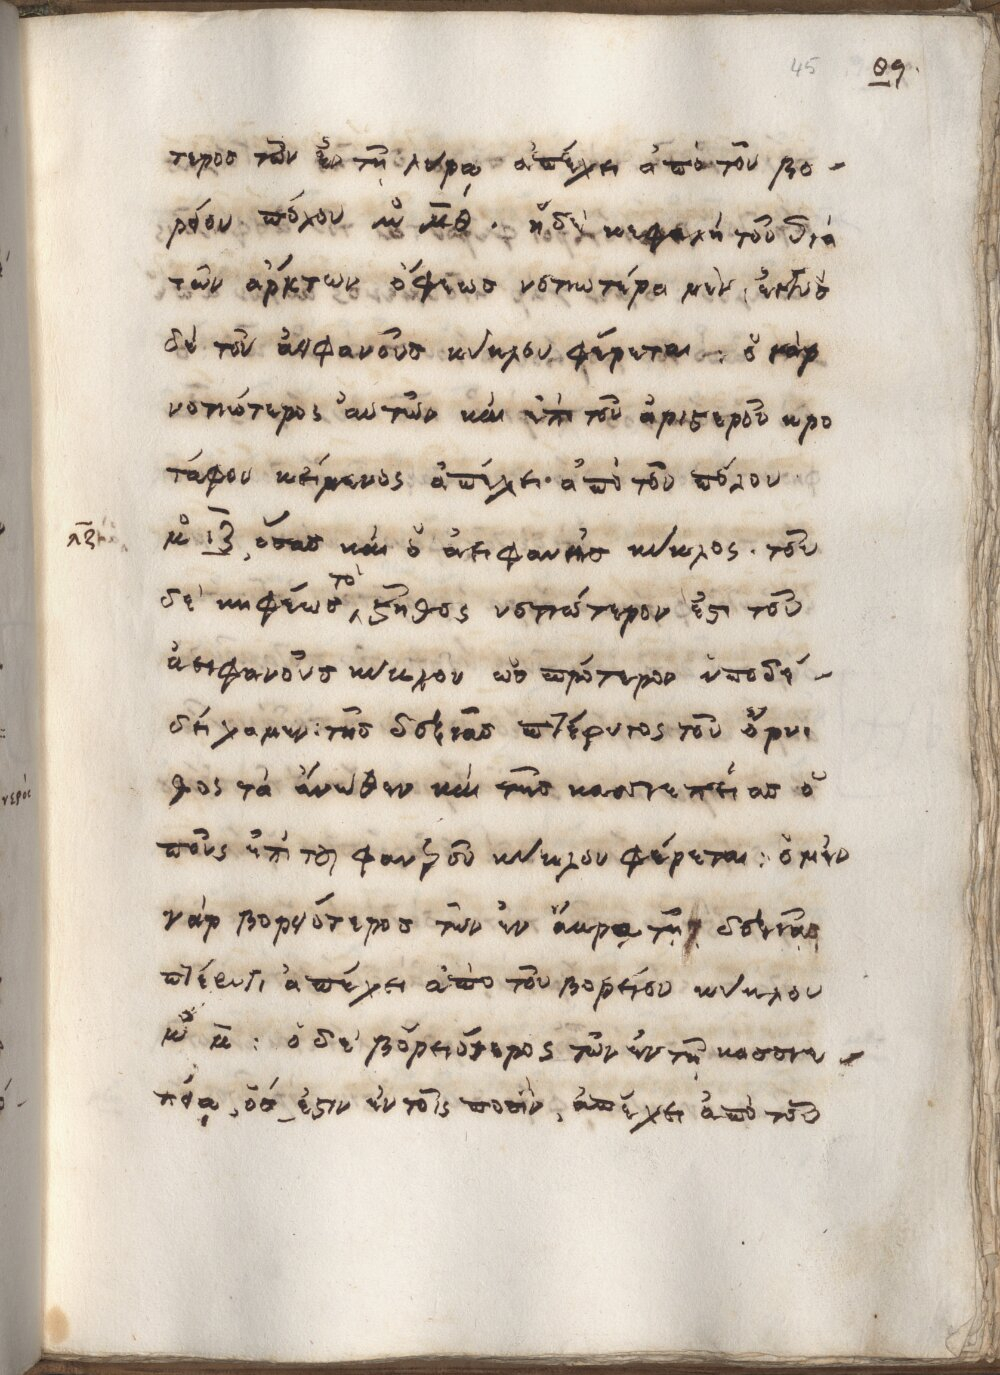 45 89.
τερος τῶν ἐν τῇ λύρᾳ ἀπέχει ἀπὸ τοῦ βο-
ρείου πόλου μο̅ μ̅θ̅. ἡ δὲ κεφαλὴ τοῦ διὰ
τῶν ἄρκτων ὄφεως νοτιωτέρα μὲν, ἐκτὸς
δὲ τοῦ ἀειφανοῦς κύκλου φέρεται: ὁ γὰρ
νοτιώτερος αὐτῶν καὶ ἐπὶ τοῦ ἀριστεροῦ κρο
τάφου κείμενος ἀπέχει ἀπὸ τοῦ πόλου
μο̅ ι̅ζ̅, ὅσας καὶ ὁ ἀειφανὴς κύκλος. τοῦ
δὲ κηφέως τὸ στῆθος νοτιώτερον ἐστι τοῦ
ἀειφανοῦς κύκλου ὡς πρότερον ὑποδε-
δείχαμεν: τῆς δεξιᾶς πτέρυγος τοῦ ὄρνι
θος τὰ ἄνωθεν καὶ τῆς κασσιεπείας ὁ
ποὺς ἐπὶ τοῦ φανεροῦ κύκλου φέρεται: ὁ μὲν
γὰρ βορειότερος τῶν ἐν ἄκρᾳ τῇ δεξιᾷ
πτέρυγι ἀπέχει ἀπὸ τοῦ βορείου κύκλου
μο̅ μ̅: ὁ δὲ βορειότερος τῶν ἐν τῇ κασσιε-
πείᾳ, ὅς ἐστιν ἐν τοῖς ποσὶν, ἀπέχει ἀπὸ τοῦ